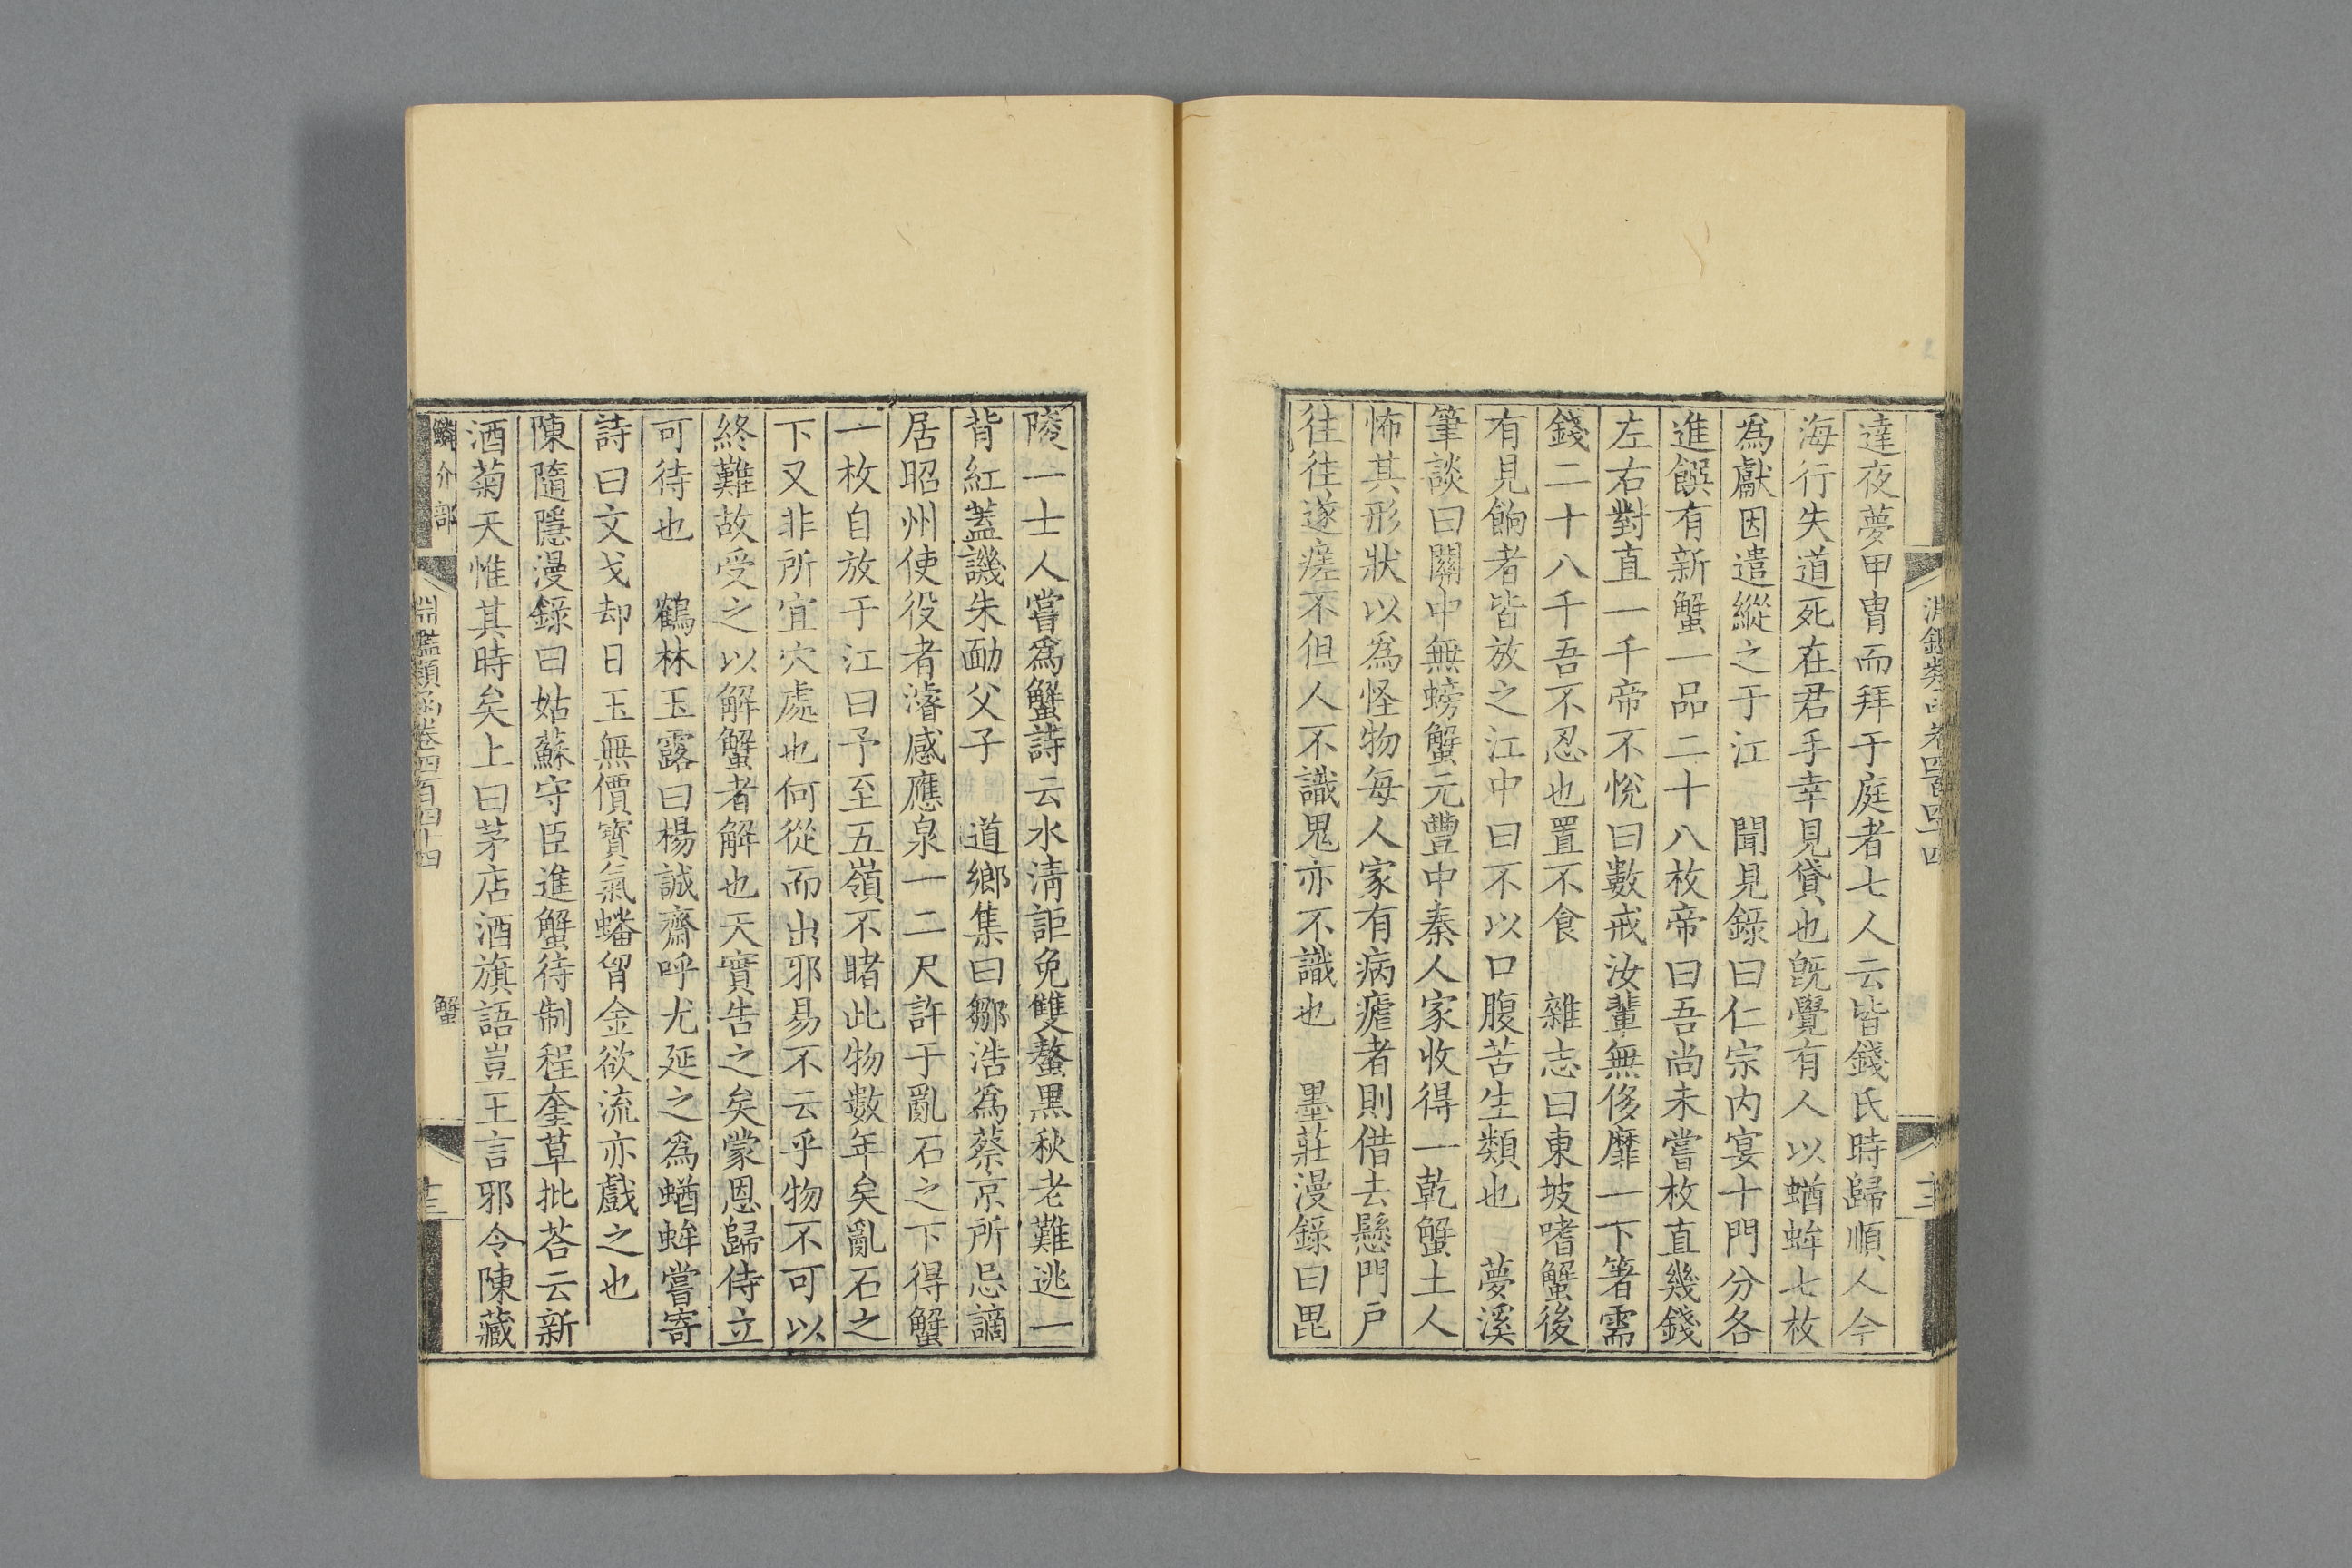 達夜夢甲冑而拜于庭者七人云皆錢氏時歸順人今
海行失道死在君手幸見貸也旣覺有人以蝤蛑七枚
爲獻因遣縱之于江　聞見錄曰仁宗內宴十門分各
進饌有新蟹一品二十八枚帝曰吾尚未嘗枚直幾錢
左右對直一千帝不悅曰數戒汝輩無侈靡一下箸需
錢二十八千吾不忍也置不食　雜志曰東坡嗜蟹後
有見餉者皆放之江中曰不以口腹苦生類也　夢溪
筆談曰關中無螃蟹元豐中秦人家收得一乾蟹土人
怖其形狀以爲怪物每人家有病瘧者則借去懸門戶
往往遂瘥不但人不識鬼亦不識也　墨莊漫錄曰毘
陵一士人嘗爲蟹詩云水淸詎免雙螯黑秋老難逃一
背紅蓋譏朱勔父子　道鄉集曰鄒浩爲蔡京所忌謫
居昭州使役者濬感應泉一二尺許于亂石之下得蟹
一枚自放于江曰予至五嶺不睹此物數年矣亂石之
下又非所宜穴處也何從而出邪易不云乎物不可以
終難故受之以解蟹者解也天實告之矣蒙恩歸侍立
可待也　鶴林玉露曰楊誠齋呼尤延之爲蝤蛑嘗寄
詩曰文戈却日玉無價寶氣蟠胷金欲流亦戲之也
陳隨隱漫錄曰姑蘇守臣進蟹待制程奎草批荅云新
酒菊天惟其時矣上曰茅店酒旗語豈王言邪令陳藏
鱗介部
淵鑑類函卷四百四十四
蟹